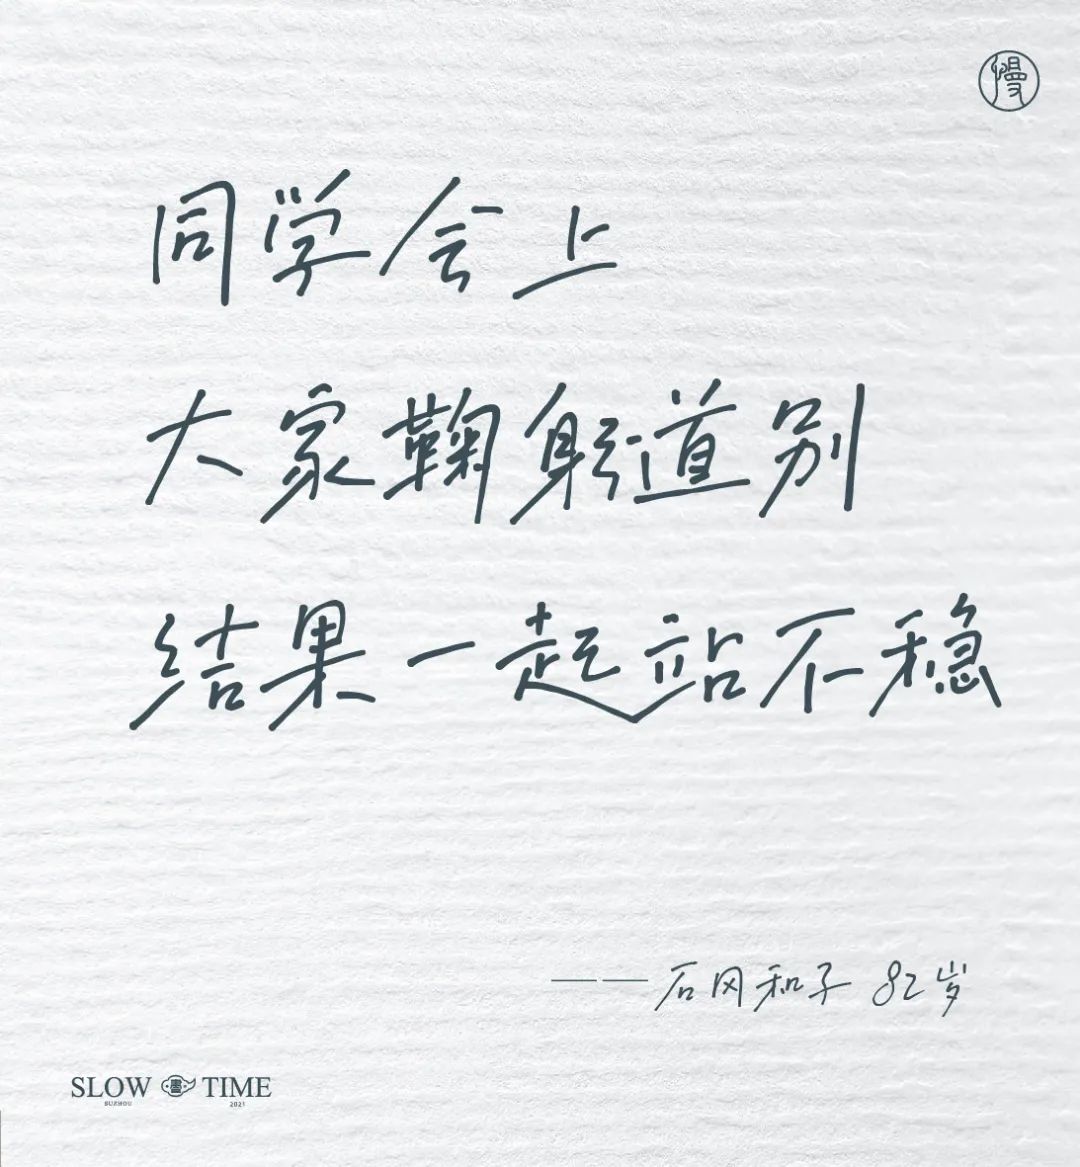 慢
同学会上
大家鞠躬道别
结果一起站不稳
——石冈和子 82岁
SLOW 書 TIME
SUZHOU 2021